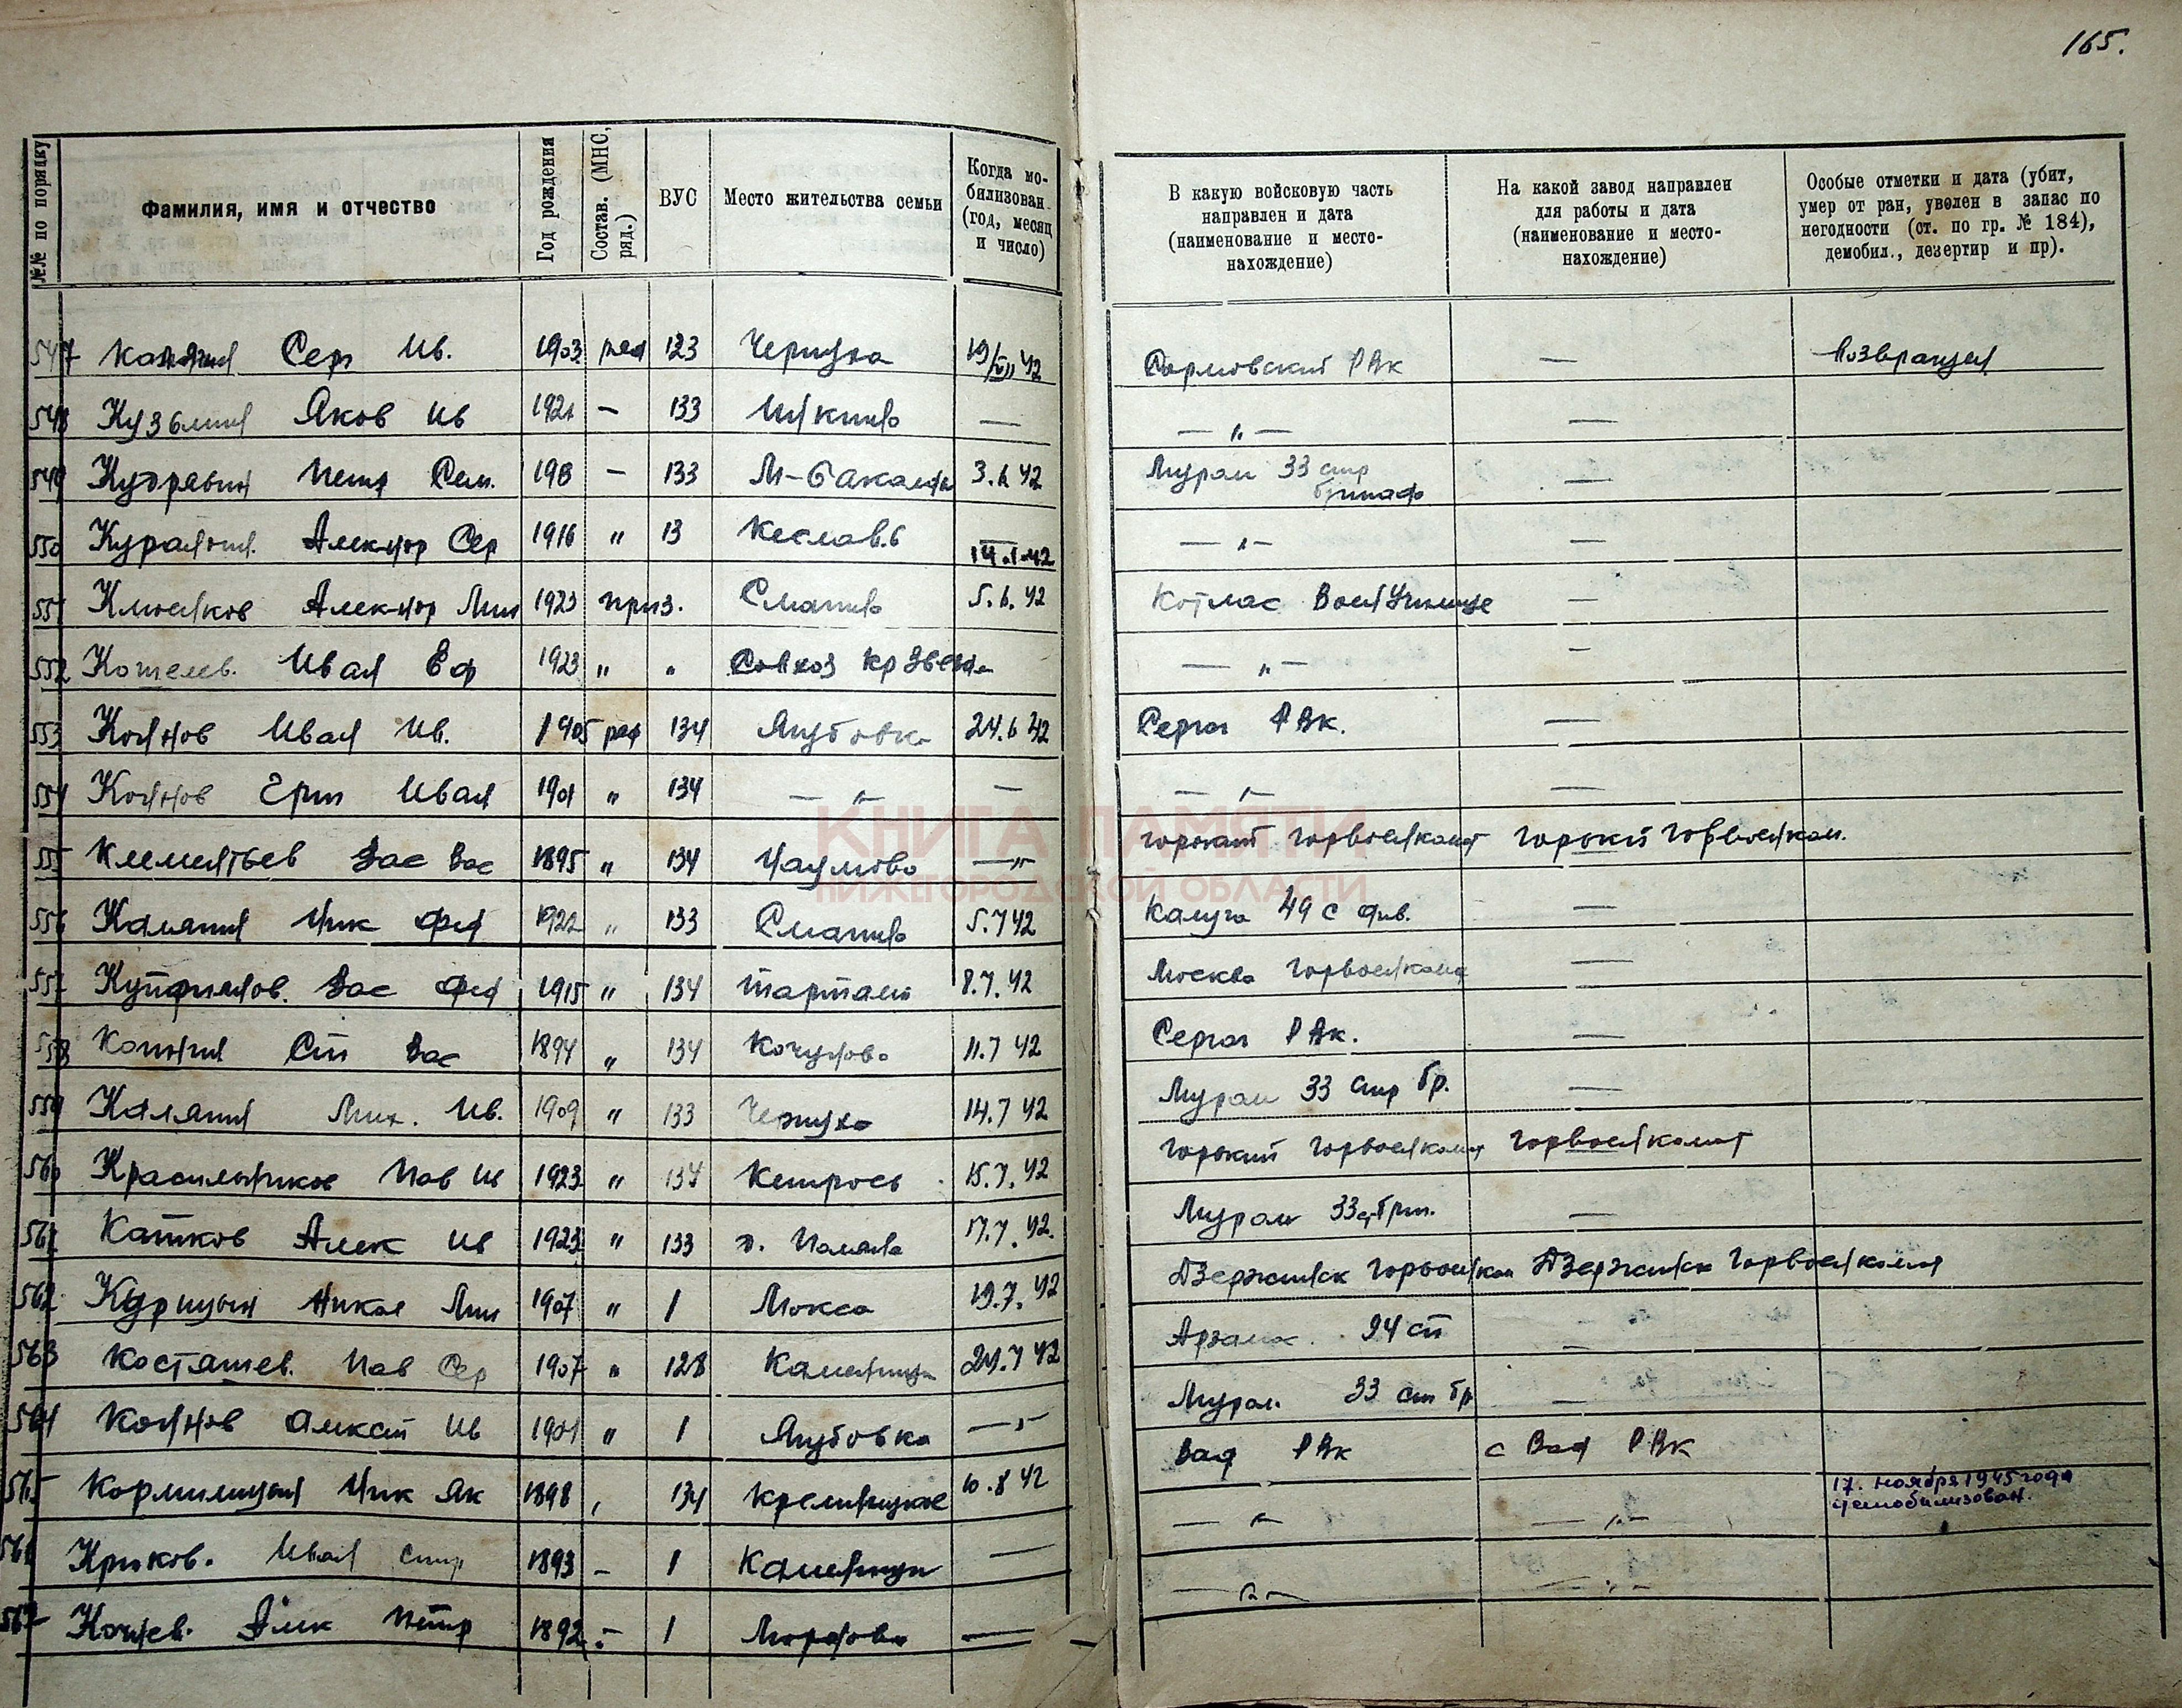 165.
№№ по порядку
Фамилия, имя и отчество
Год рождения
Состав. (МНС, ряд.)
ВУС
Место жительства семьи
Когда мобилизован (год, месяц и число)
В какую войсковую часть направлен и дата (наименование и местонахождение)
На какой завод направлен для работы и дата (наименование и местонахождение)
Особые отметки и дата (убит, умер от ран, уволен в запас по негодности (ст. по гр. № 184), демобил., дезертир и пр).
547 Сер Ив. 1903 ряд 123 Чернуха 19/VII 42 Сормовский РВК —
548 Кузьмин Яков Ив 1921 — 133 — — „ — —
549 Кудрявцев Петр Сем. — 133 М-Бакалды 3.6 42 Муром 33 бригада —
550 Александр Сер 1916 " 13 Кеслав.б 14.1.42 — " — —
551 Александр Мих 1923 приз. Смагино 5.6.42 Котлас Воен Училище —
552 Кошелев. Иван Еф 1923 " " Совхоз Кр Звезда — „ — —
553 Коннов Иван Ив. 1905 ряд 134 Якубовка 24.6 42 Сергач РВК. —
554 Коннов Иван 1901 " 134 — " — — — " — —
555 Клементьев Вас Вас 1895 " 134 Наумово — " Горький Горвоенкомат Горький Горвоенком.
556 Калягин Ник Фед 1922 " 133 Смагино 5.7 42 Калуга 49 с див. —
557 Вас Фед 1915 " 134 Тарталей 8.7.42 Москва Горвоенкомат —
558 Ст Вас 1894 " 134 Кочуново 11.7 42 Сергач РВК. —
559 Калягин Мих. Ив. 1909 " 133 Чернуха 14.7 42 Муром 33 бр. —
560 Красильников Пав Ив 1923 " 134 Кетрось 15.7.42 Горький Горвоенкомат Горвоенкомат
561 Катков Алек Ив 1923 " 133 17.7.42. Муром 33 —
562 Курицын Никол Мих 1907 " 1 Мокса 19.7.42 Дзержинск Горвоенком Дзержинск Горвоенкомат
563 Пав Сер 1907 " 128 Каменищи 24.7 42 94 сп —
564 Коннов Алексей Ив 1901 " 1 Якубовка — " — Муром. 33 бр —
565 Кормилицын Ник Як 1898 134 Кременицкое 10.8 42 Вад РВК с Вад РВК
566 Крюков. Иван Спир 1893 — 1 Каменищи — — " — — " — 17. ноября 1945 года демобилизован.
567 Алек Петр 1892 — 1 — — " — — " —
КНИГА ПАМЯТИ
НИЖЕГОРОДСКОЙ ОБЛАСТИ